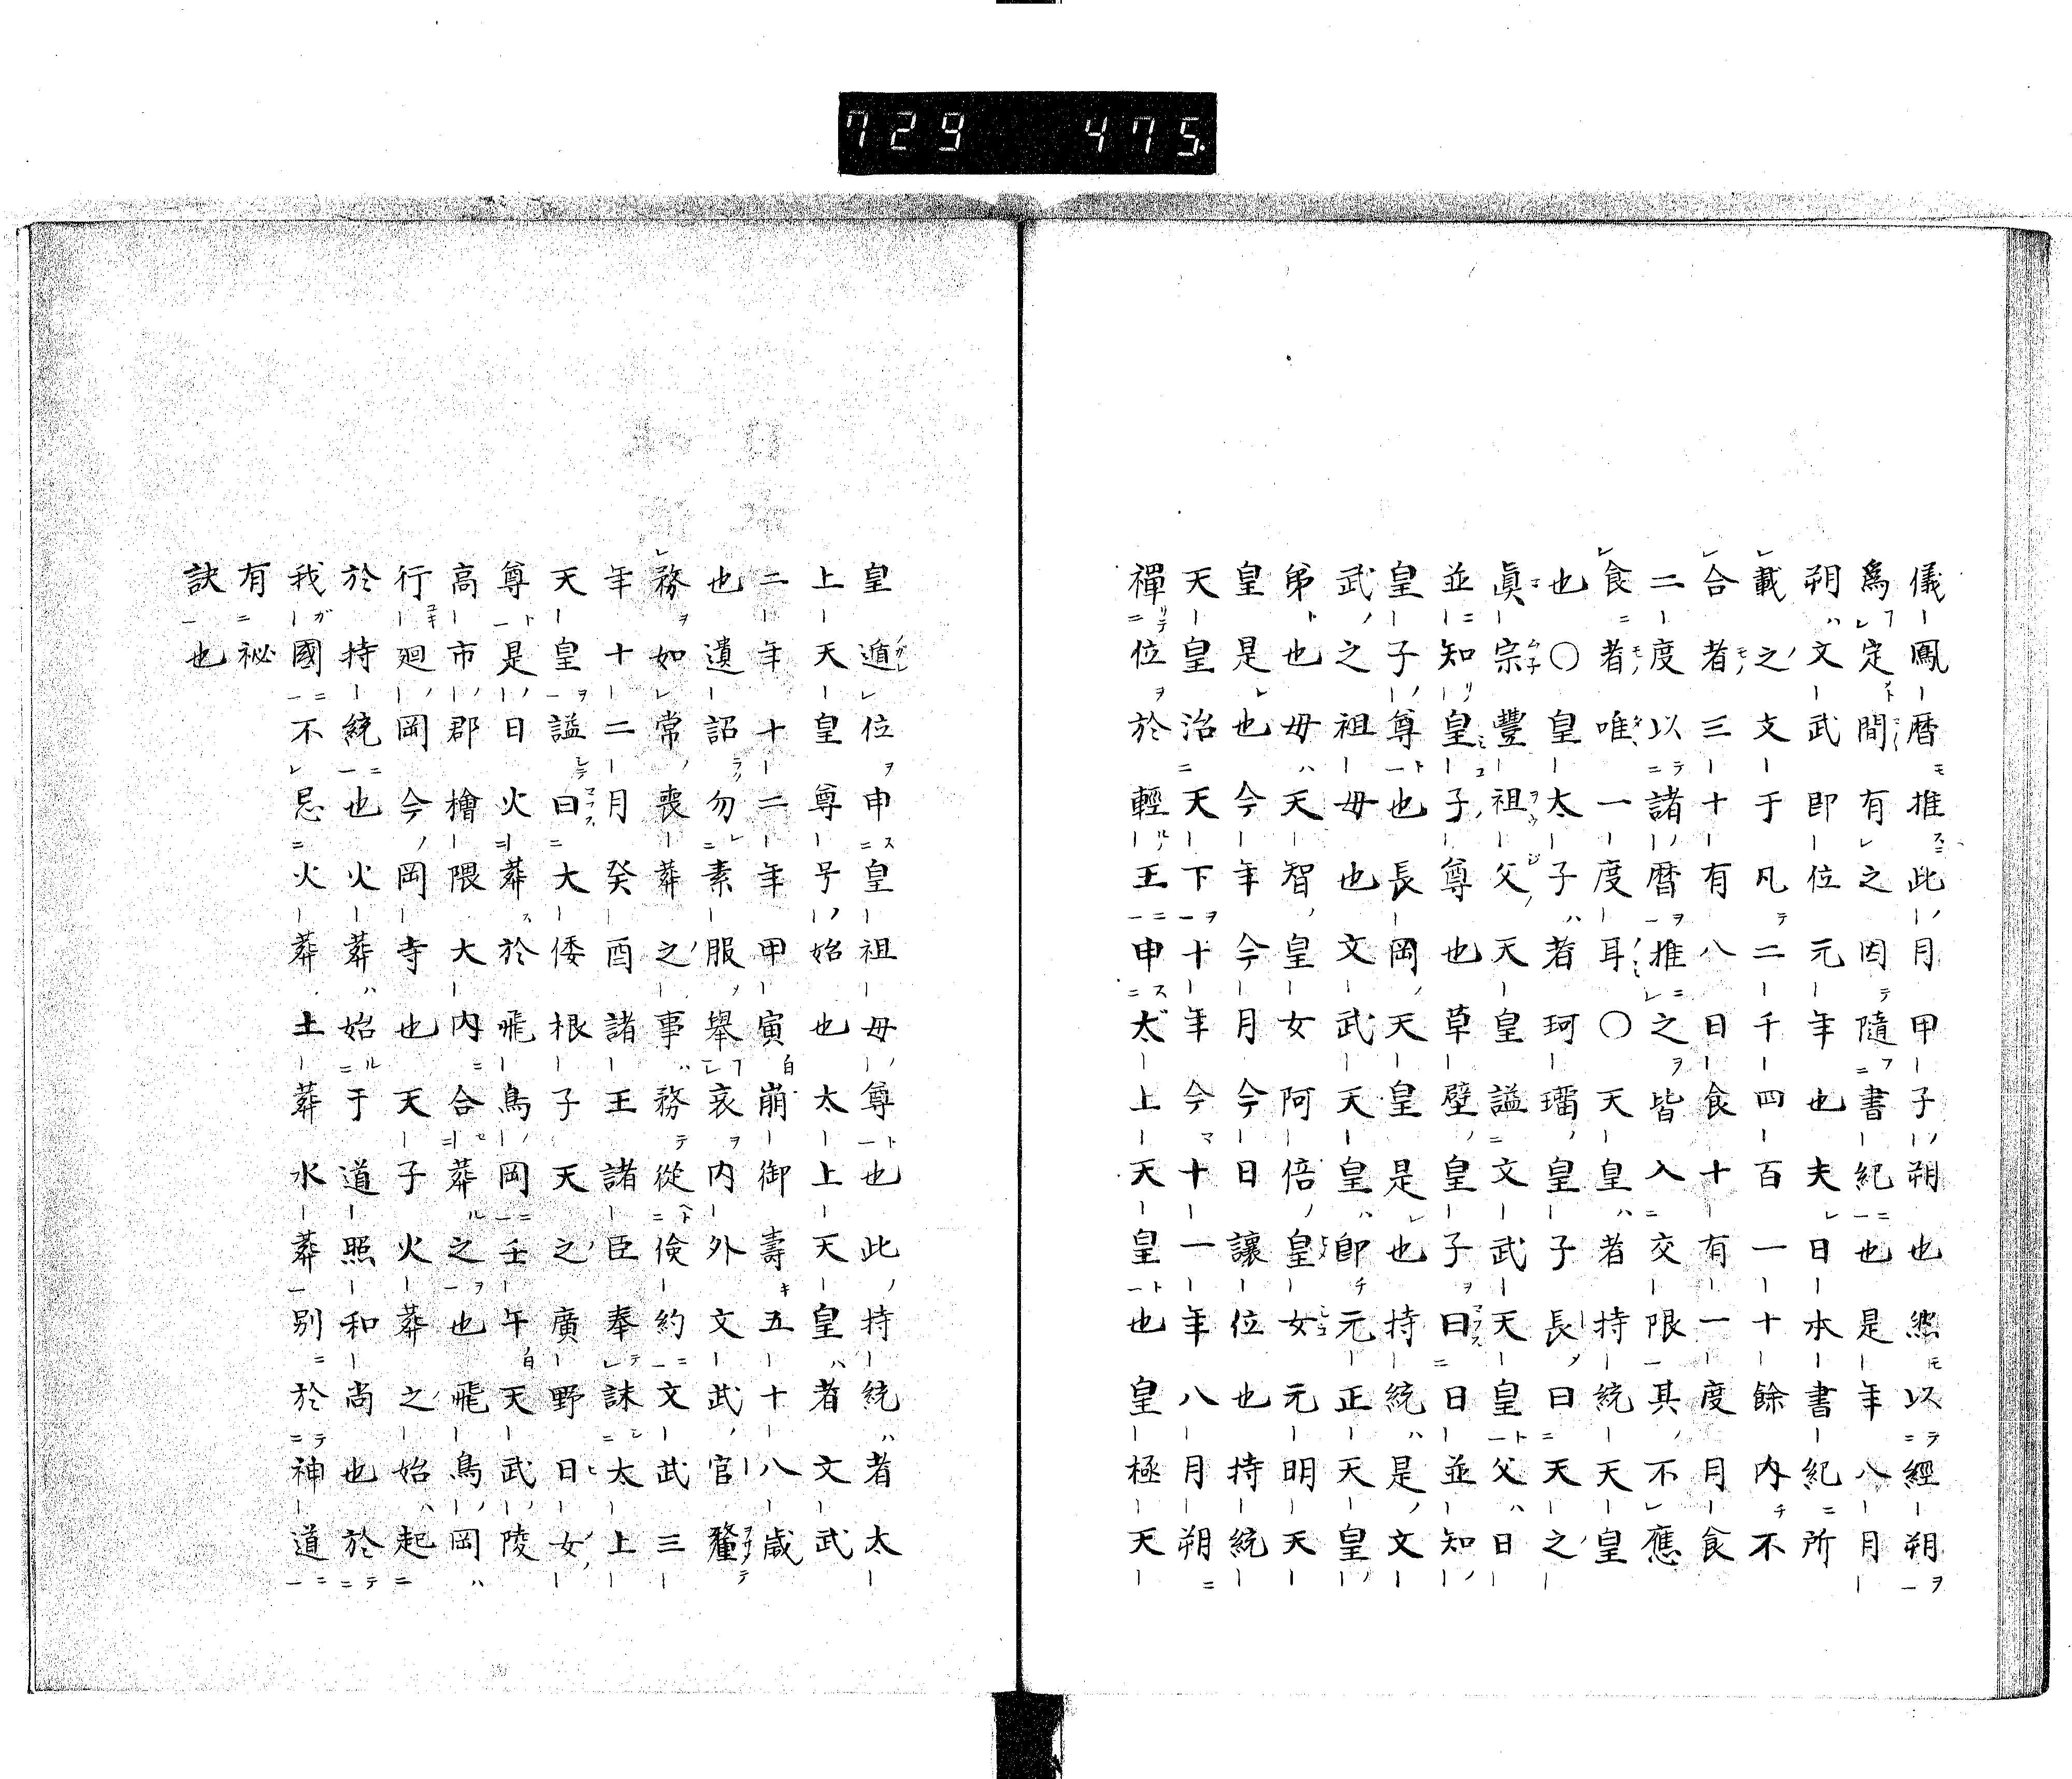 729 475.
儀鳳暦推此月甲子朔也然以經朔
爲定間有之因隨書紀也是年八月
朔文武即位元年也夫日本書紀所
載之文于凡二千四百一十餘内不
合者三十有八日食十有一度月食
二度以諸暦推之皆入交限其不應
食者唯一度耳〇天皇者持統天皇
也〇皇太子者珂瑠皇子長曰天之
眞宗豐祖父天皇謚文武天皇父日
並知皇子尊也草壁皇子曰日並知
皇子尊也長岡天皇是也持統是文
武之祖母也文武天皇即元正天皇
弟也母天智皇女阿倍皇女元明天
皇是也今年今月今日讓位也持統
天皇治天下十年今十一年八月朔
禪位於輕王申太上天皇也皇極天
皇遁位申皇祖母尊也此持統者太
上天皇尊号始也太上天皇者文武
二年十二年甲寅崩御壽五十八歳
也遺詔勿素服舉哀内外文武官釐
務如常喪葬之事務從儉約文武三
年十二月癸酉諸王諸臣奉誄太上
天皇謚曰大倭根子天之廣野日女
尊是日火葬於飛鳥岡壬午天武陵
高市郡檜隈大内合葬之也飛鳥岡
行廻岡今岡寺也天子火葬之始起
於持統也火葬始于道照和尚也於
我國不忌火葬土葬水葬別於神道
有祕
訣也